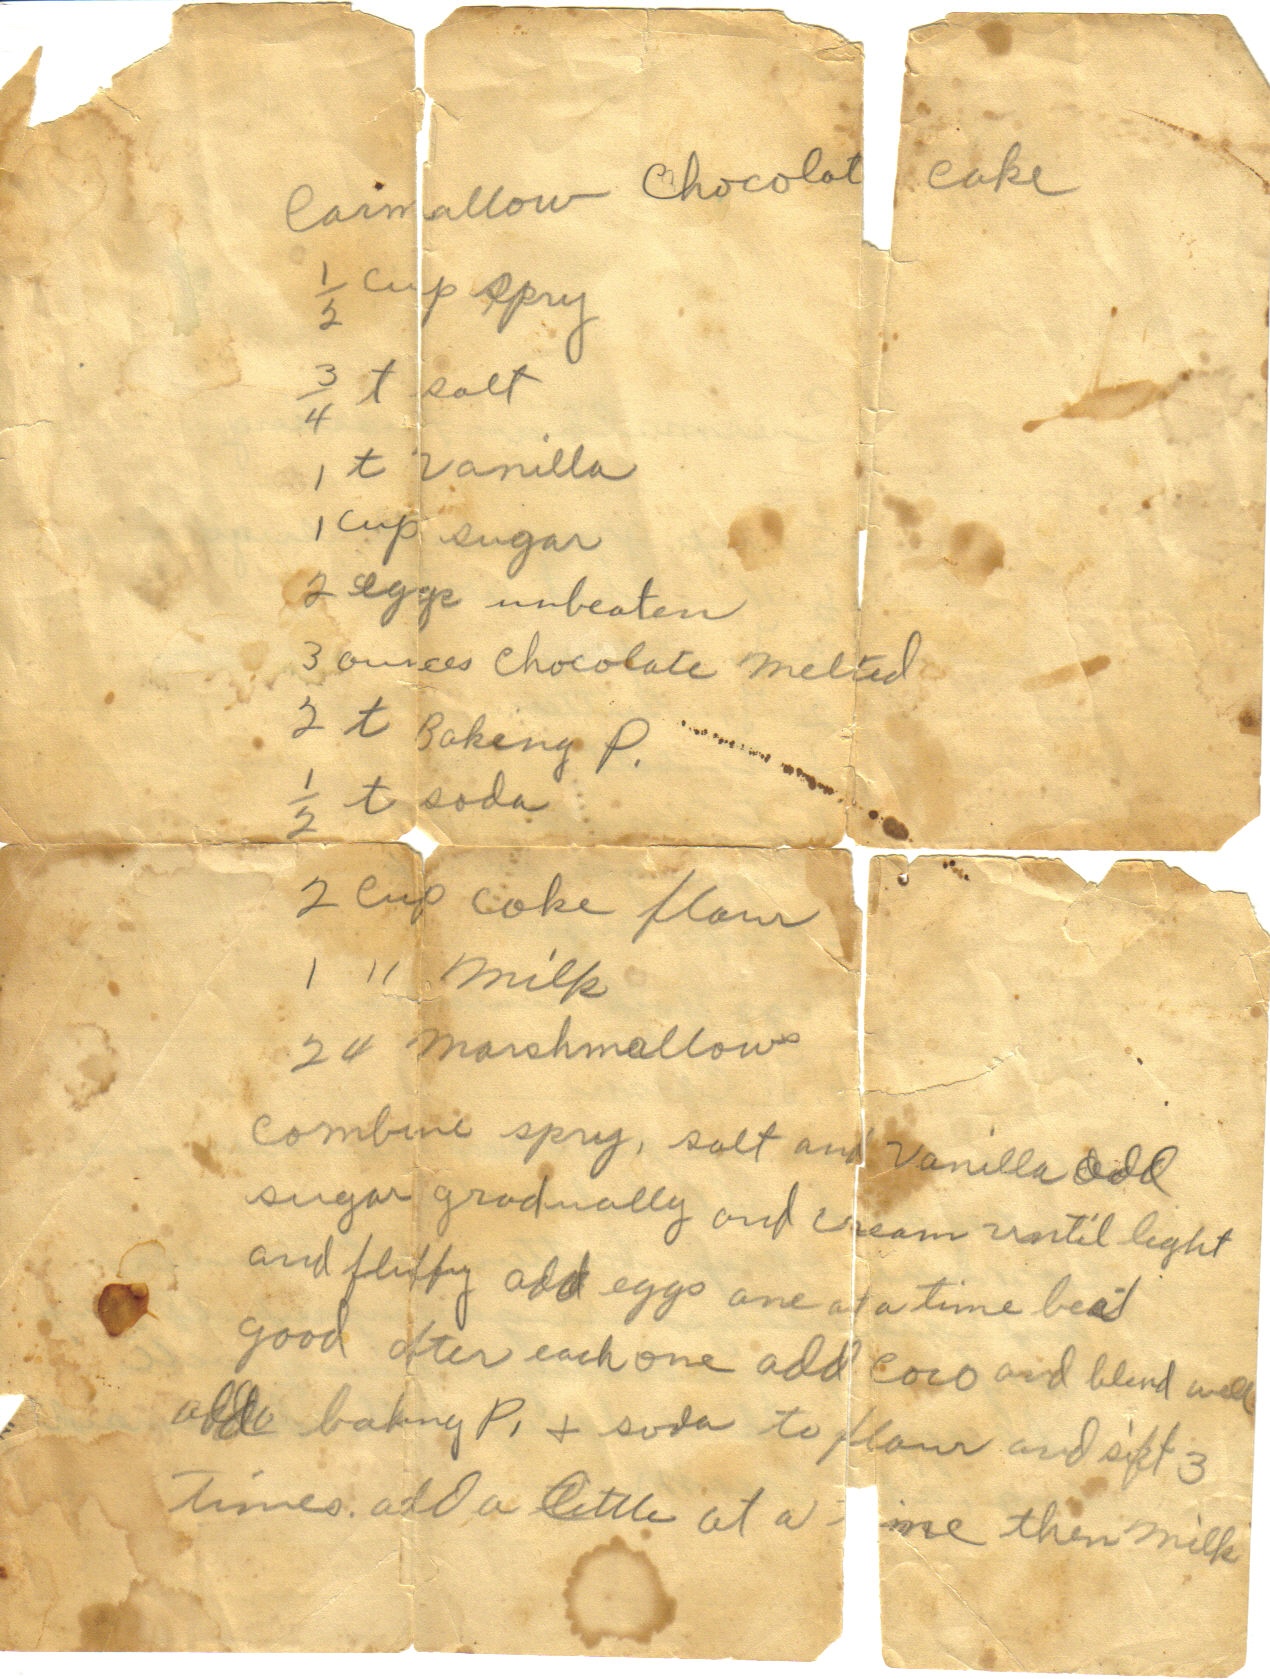 Carmallow Chocolat cake
1/2 cup spry
3/4 t salt
1 t vanilla
1 cup sugar
2 eggs unbeaten
3 ounces chocolate melted
2 t Baking P.
1/2 t soda
2 cup cake flour
1 " Milk
24 Marshmallows
combine spry, salt and vanilla add
sugar gradually and cream until light
and fluffy add eggs one at a time beat
good after each one add coco and blend well
add baking P, + soda to flour and sift 3
Times. add a little at a time then milk